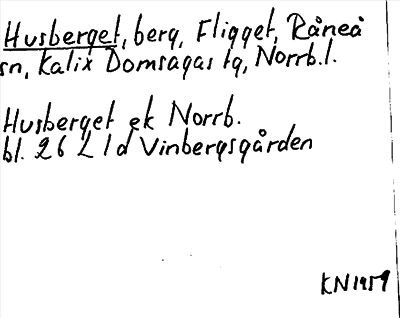 Husberget, berg, Fligget, Råneå
sn, Kalix Domsagas tg, Norrb.l.
Husberget ek Norrb.
bl. 26 L 1d Vinbergsgården
KN1959